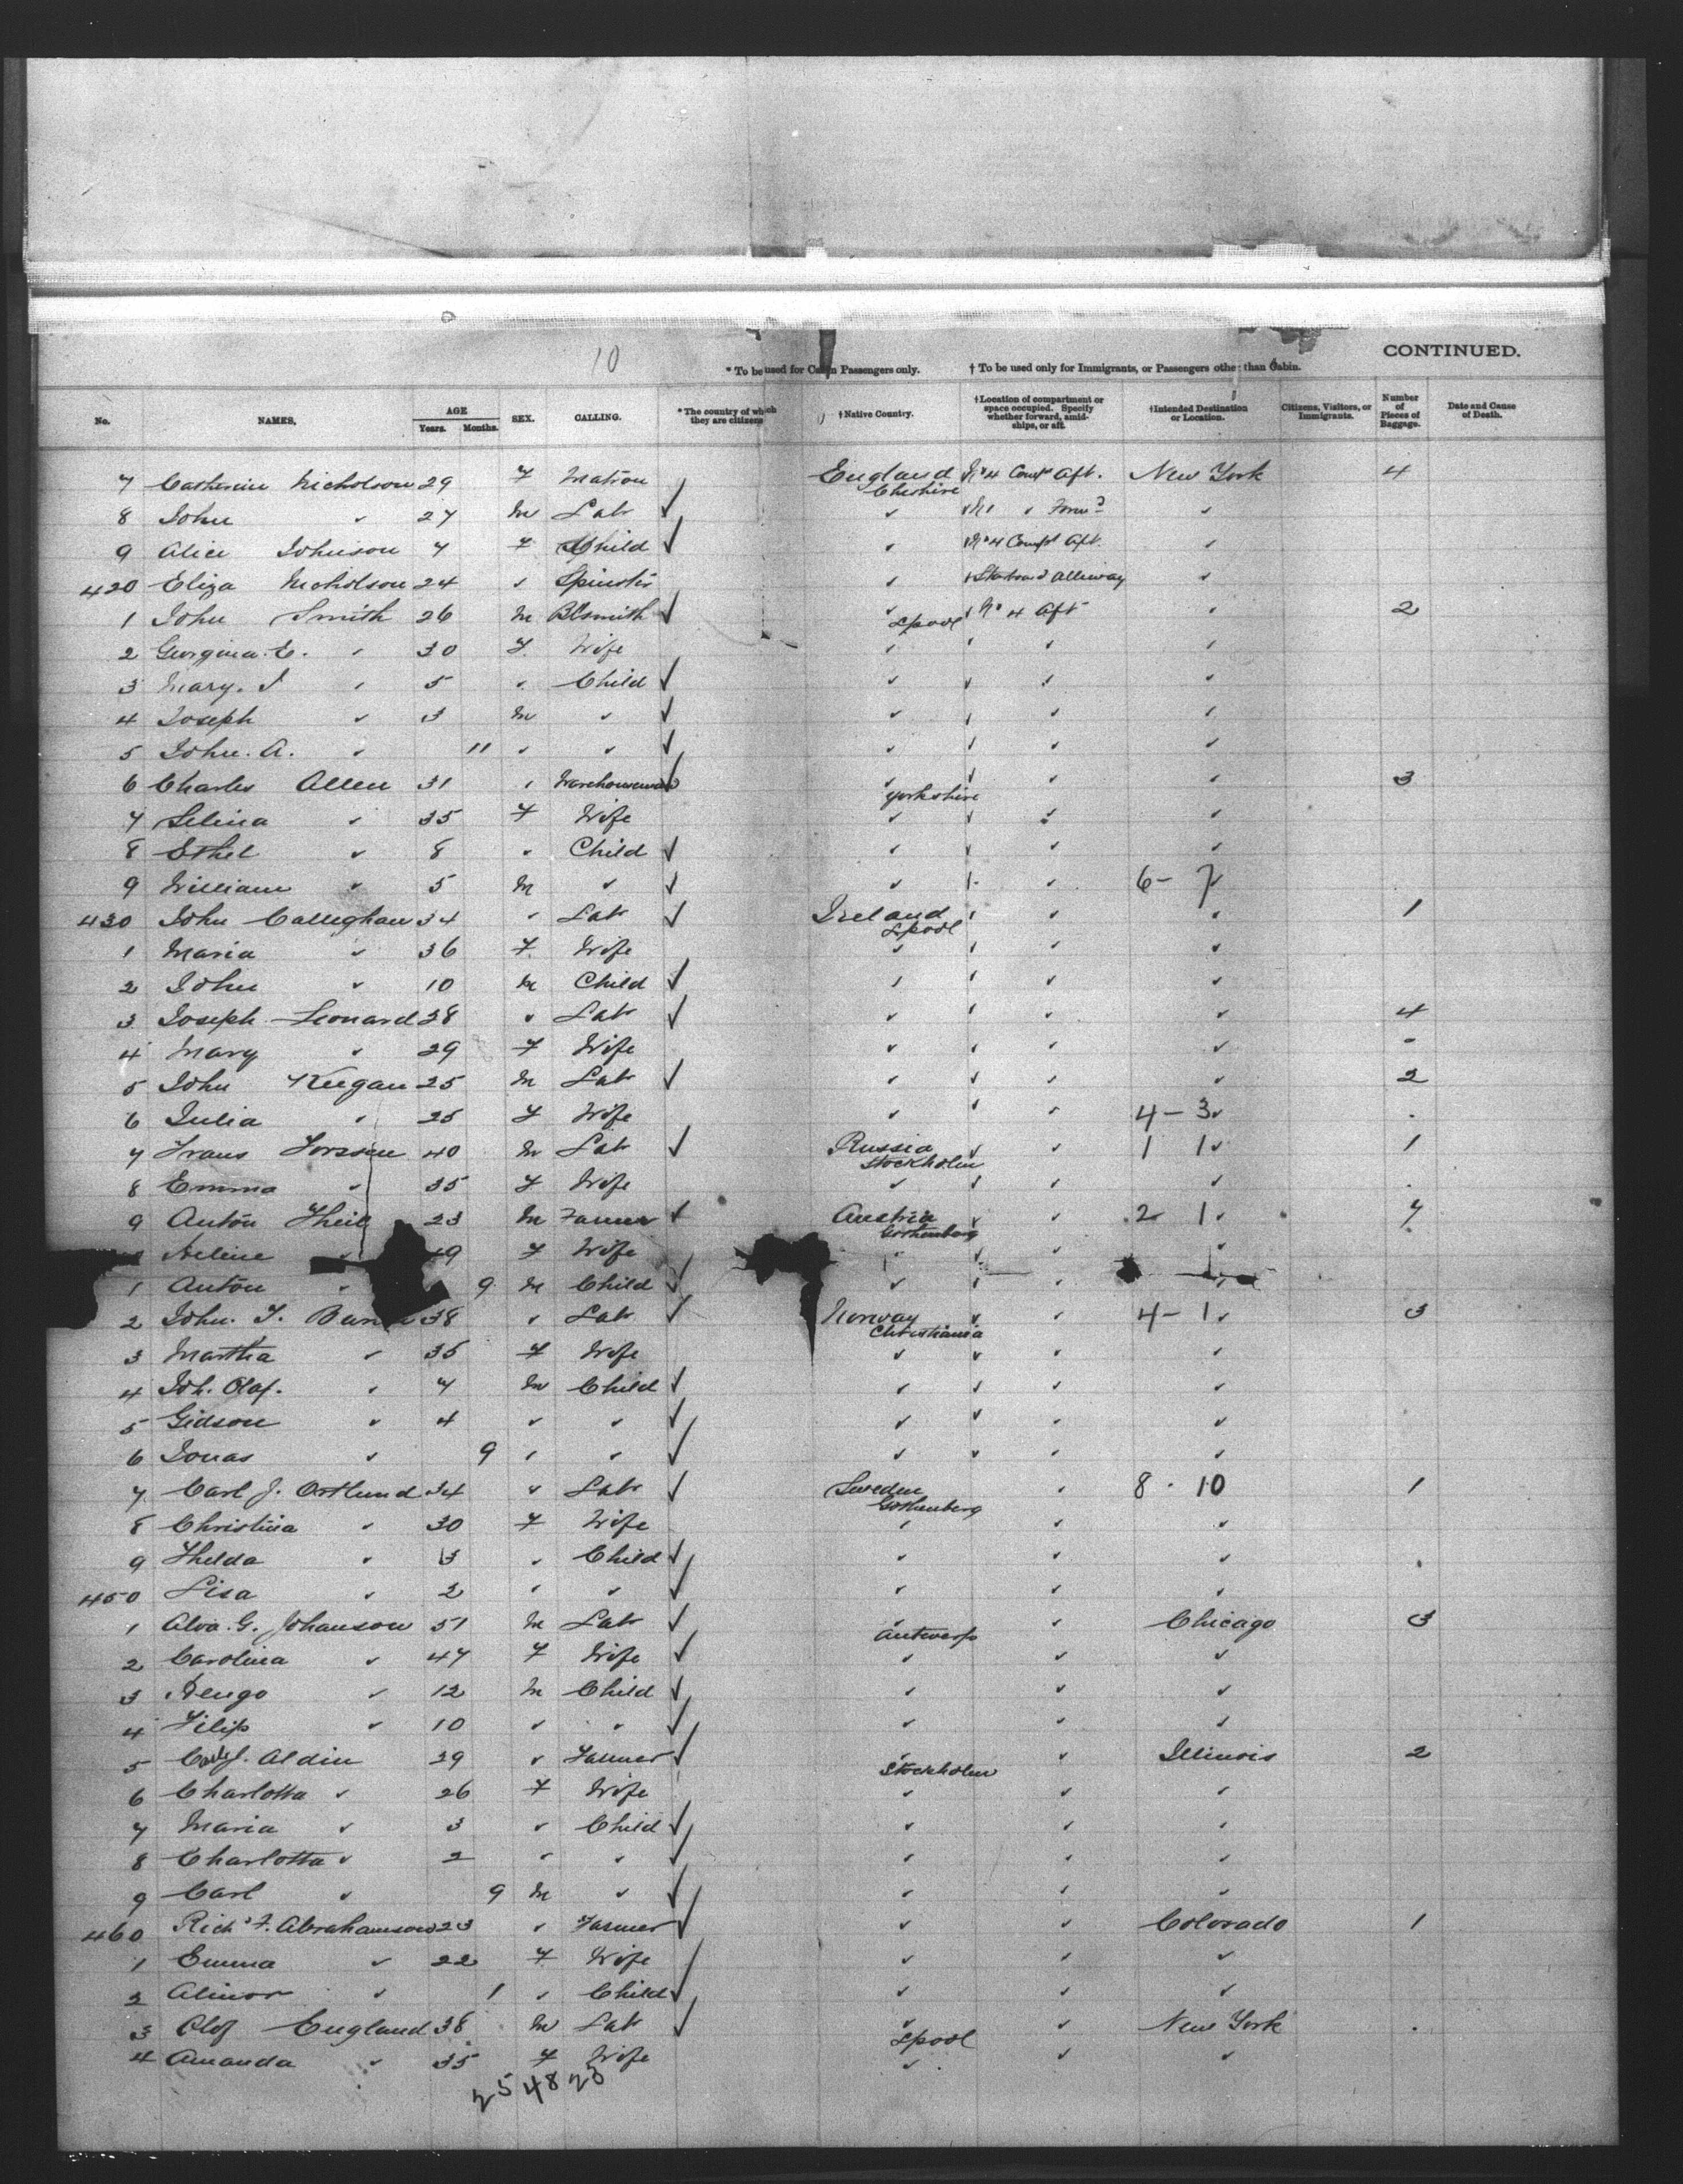 10
CONTINUED.
* To be used for Cabin Passengers only. † To be used only for Immigrants, or Passengers other than Cabin.
No. NAMES, AGE Years. Months. SEX. CALLING. * The country of which they are citizens †Native Country. †Location of compartment or space occupied. Specify whether forward, amidships, or aft. †Intended Destination or Location. Citizens, Visitors, or Immigrants. Number of Pieces of Baggage. Date and Cause of Death.
7 Catherine Nicholson 29 F Matron England Cheshire No 4 Compt Aft. New York 4
8 John " 27 M Lab ✓ " " "
9 Alice Johnson 7 F Child ✓ " No 4 Compt Aft. "
420 Eliza Nicholson 24 " Spinster " Starboard Alleway "
1 John Smith 26 M Blsmith ✓ " Lpool No 4 Aft " 2
2 Georgina E. " 30 F. Wife " " " "
3 Mary. J " 5 " Child ✓ " " " "
4 Joseph " 3 M " ✓ " " " "
5 John. A. " 11 " " ✓ " " " "
6 Charles Allen 31 " Warehouseman ✓ " Yorkshire " " " 3
7 Selina " 35 F Wife " " " "
8 Ethel " 8 " Child ✓ " " " "
9 William " 5 M " ✓ " " " 6 - 7
430 John Calleghan 34 " Lab ✓ Ireland Lpool " " " 1
1 Maria " 36 F. Wife " " " "
2 John " 10 M Child ✓ " " " "
3 Joseph Leonard 28 " Lab ✓ " " " " 4
4 Mary " 29 F Wife " " " " -
5 John Keegan 25 M Lab ✓ " " " " 2
6 Julia " 25 F Wife " " " 4 - 3 " .
7 Frans Forssen 40 M Lab ✓ Russia Stockholm " " 1 1 " 1
8 Emma " 35 F Wife " " " " .
9 Anton Theil 23 M Farmer ✓ Austria Gothenberg " " 2 1 " 7
Helene " 9 F Wife " " " "
1 Anton " 9 M Child ✓ " " "
2 John. T. 38 " Lab ✓ Norway Christiania " " 4 - 1 " 3
3 Martha " 35 F Wife " " " "
4 Joh. Olaf. " 7 M Child ✓ " " " "
5 Gidson " 4 " " ✓ " " " "
6 Jonas " 9 " " ✓ " " " "
7 Carl J. Ortlund 34 " Lab ✓ Sweden Gothenberg " 8 - 10 1
8 Christina " 30 F Wife " " "
9 Thelda " 3 " Child ✓ " " " .
450 Lisa " 2 " " ✓ " " "
1 Alva. G. Johanson 51 M Lab ✓ " Antwerp " Chicago 3
2 Carolina " 47 F Wife ✓ " " "
3 Hengo " 12 M Child ✓ " " "
4 Filip " 10 " " ✓ " " "
5 Aldin 29 " Farmer ✓ " Stockholm " Illinois 2
6 Charlotta " 26 F Wife " " "
7 Maria " 3 " Child ✓ " " "
8 Charlotta " 2 " " ✓ " " "
9 Carl " 9 M " ✓ " " "
460 Richd F. Abrahamson 23 " Farmer ✓ " " Colorado 1
1 Emma " 22 F Wife " " "
2 Alinor " 1 " Child ✓ " " "
3 Olof England 38 M Lab ✓ " Lpool " New York .
4 Amanda " 35 F Wife " " "
25 48 23